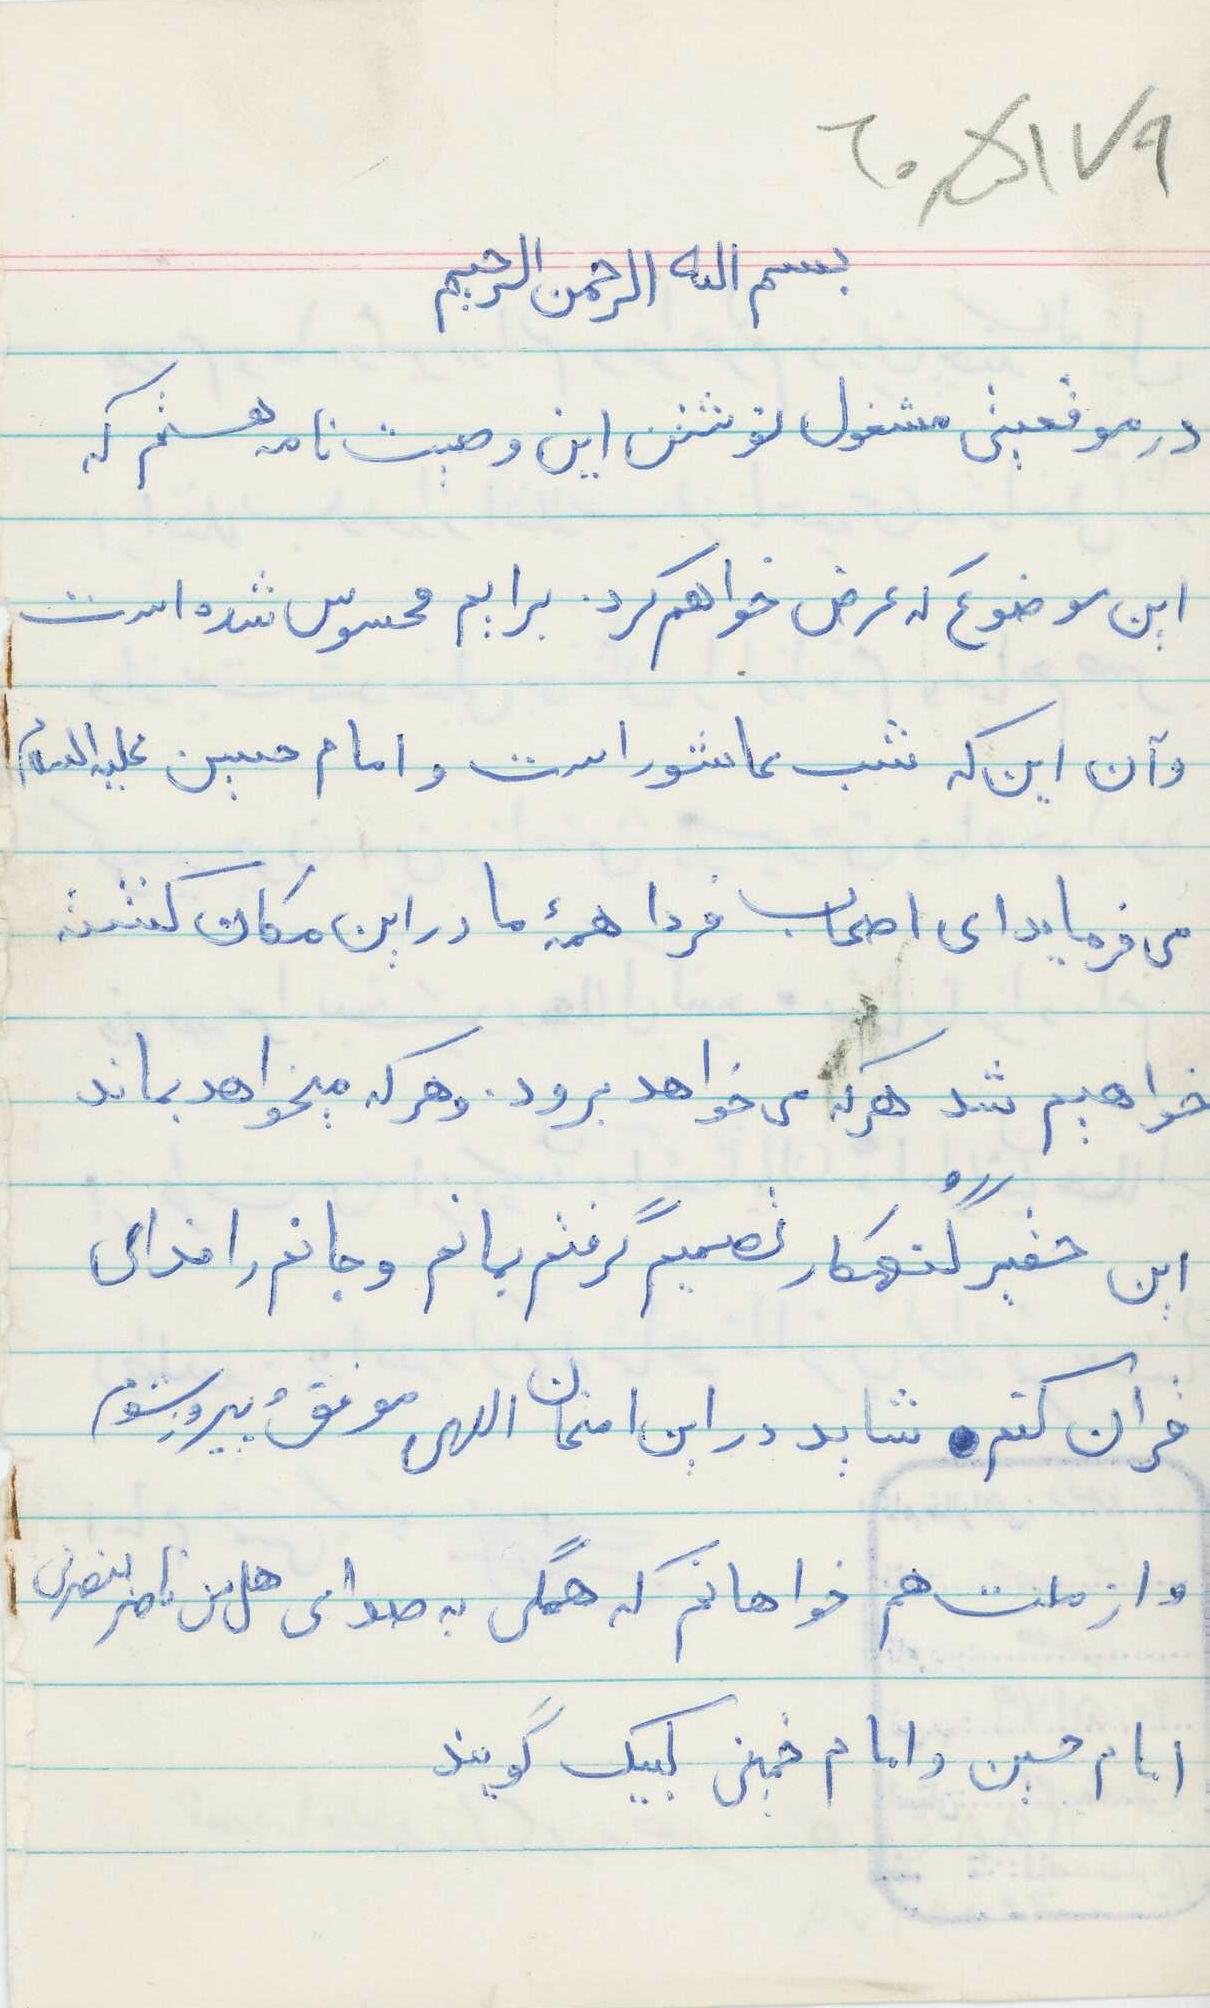 بسم الله الرحمن الرحیم
در موقعیتی مشغول نوشتن این وصیت نامه هستم که
این موضوع که عرض خواهم کرد. برایم محسوس شده است
و آن این که شب عاشورا است و امام حسین علیه السلام
می فرماید ای اصحاب فردا همهٔ ما در این مکان کشته
خواهیم شد هرکه می خواهد برود. و هرکه میخواهد بماند
این حقیر گنهکار تصمیم گرفتم بمانم و جانم را فدای
قرآن کنم. شاید در این امتحان الهی موفق و پیروز شوم
و از ملت هم خواهانم که همگی به صدای هل من ناصر ینصرنی
امام حسین و امام خمینی لبیک گویند